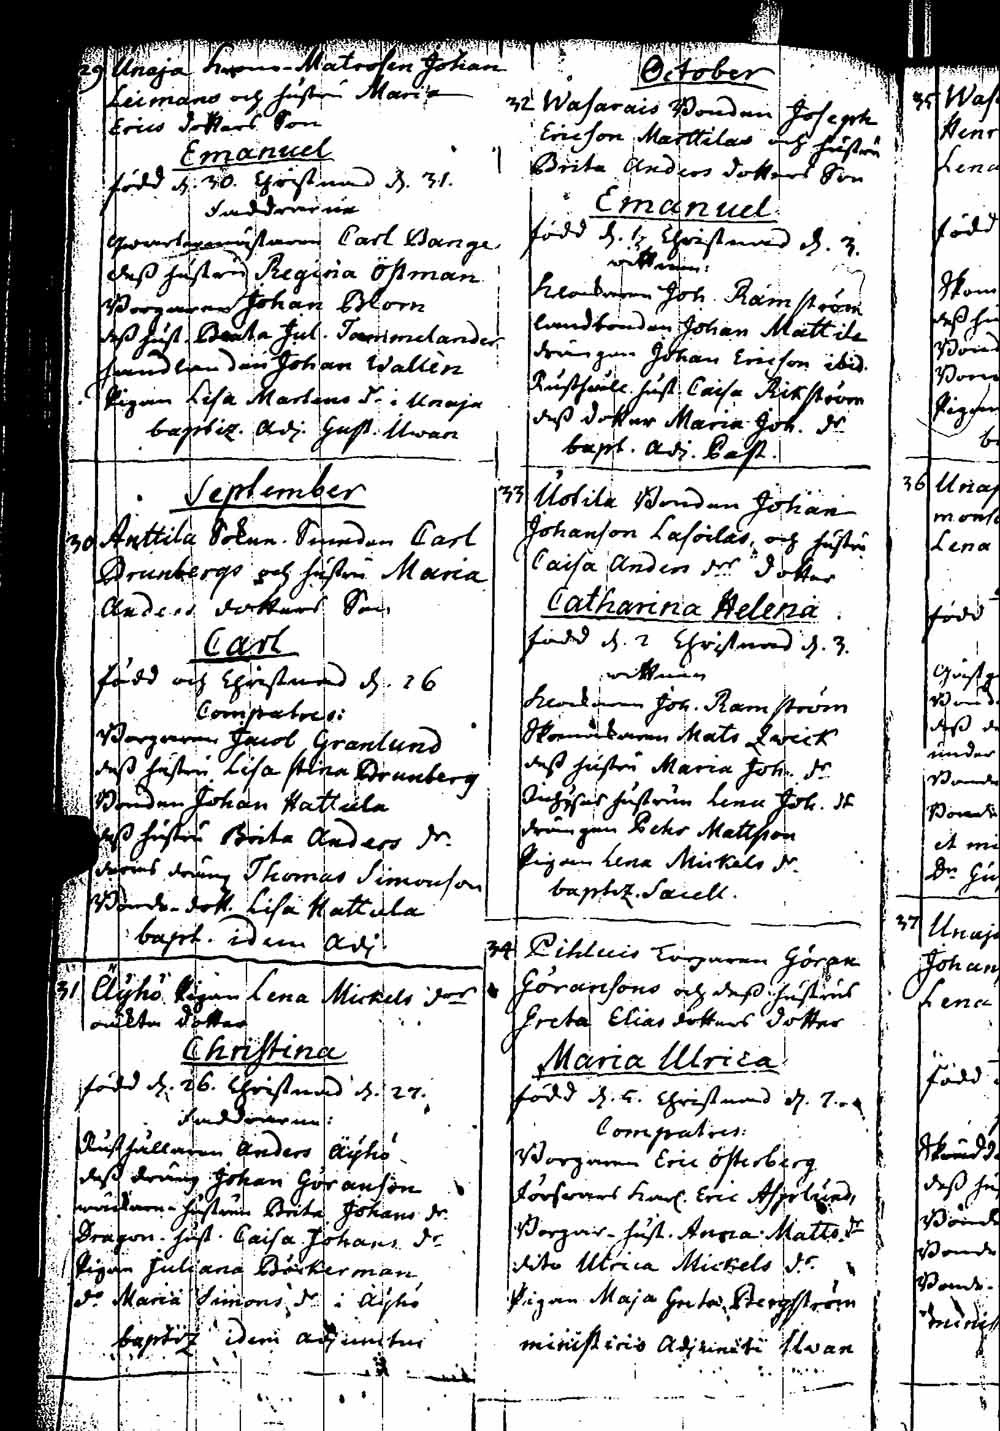 29 Unaja Krono-Matrosen Johan
Leimans och hustru Maria
Erics dotters Son
Emanuel
född d. 30. Christnad d. 31.
Faddrarne
Carl Bange
dess hustru Regina Östman
Borgaren Johan Blom
dess hust. Beata Jul. Tammelander
handlanden Johan Wallén
Pigan Lisa Martens dr. i Unaja
baptiz. Adj. Gust. Uwan
September
30 Anttila Sokn. Smeden Carl
Brunbergs och hustru Maria
Anders dotters Son
Carl
född och Christnad d. 26
Compatres:
Borgaren Jacob Granlund
dess hustru Lisa Stina Brunberg
Bonden Johan Hattula
dess hustru Brita Anders dr.
deras dräng Thomas Simonson
Bonde-dott. Lisa Hattula
bapt. idem Adj.
31 Äyhö Pigan Lena Mickels drs
oäkta dotter
Christina
född d. 26. Christnad d. 27.
Faddrarne:
Rusthållaren Anders Äyhö
dess dräng Johan Göranson
hustrun Brita Johans dr.
Dragon. hust. Caisa Johans dr
Pigan Juliana Bäckerman
do Maria Simons dr i Äyhö
baptiz idem adjunctus
October
32 Wasarais Bonden Joseph
Ericson Marttilas och hustru
Brita Anders dotters Son
Emanuel
född d. Christnad d. 3.
wittnen:
Klockaren Joh. Ramström
landbonden Johan Mattila
drängen Johan Ericson ibid.
Rusthåll. hust. Caisa Rikström
dess dotter Maria Joh. dr
bapt. Adj. Past.
33 Uotila Bonden Johan
Johanson Lasoilas och hustru
Caisa Anders drs Dotter
Catharina Helena
född d. 2 Christnad d. 3.
wittnen
Klockaren Joh. Ramström
Skomakaren Mats Qweick
dess hustru Maria Joh. dr
hustrun Lena Joh. dr
drängen Pehr Mattsson
Pigan Lena Mickels dr
baptiz. Sacell.
34 Pihlus Torparen Göran
Göransons och dess hustrus
Greta Elias dotters dotter
Maria Ulrica
född d. 5. Christnad d. 7.
Compatres:
Borgaren Eric Österberg
Försvars Karl. Eric Asplund,
Borgar-hust. Anna Matts dr
dito Ulrica Mickels dr
Pigan Maja Greta Bergström
ministerio Adjuncti Uwan
35 Was
Henr
Lena
född
dess hu
Bond
Pigan
36 Unaj
Lena
född
Bond
dess d
under
Bonde
et mi
37 Unaja
Johan
Lena
född
dess hu
Bonde
Bonde-